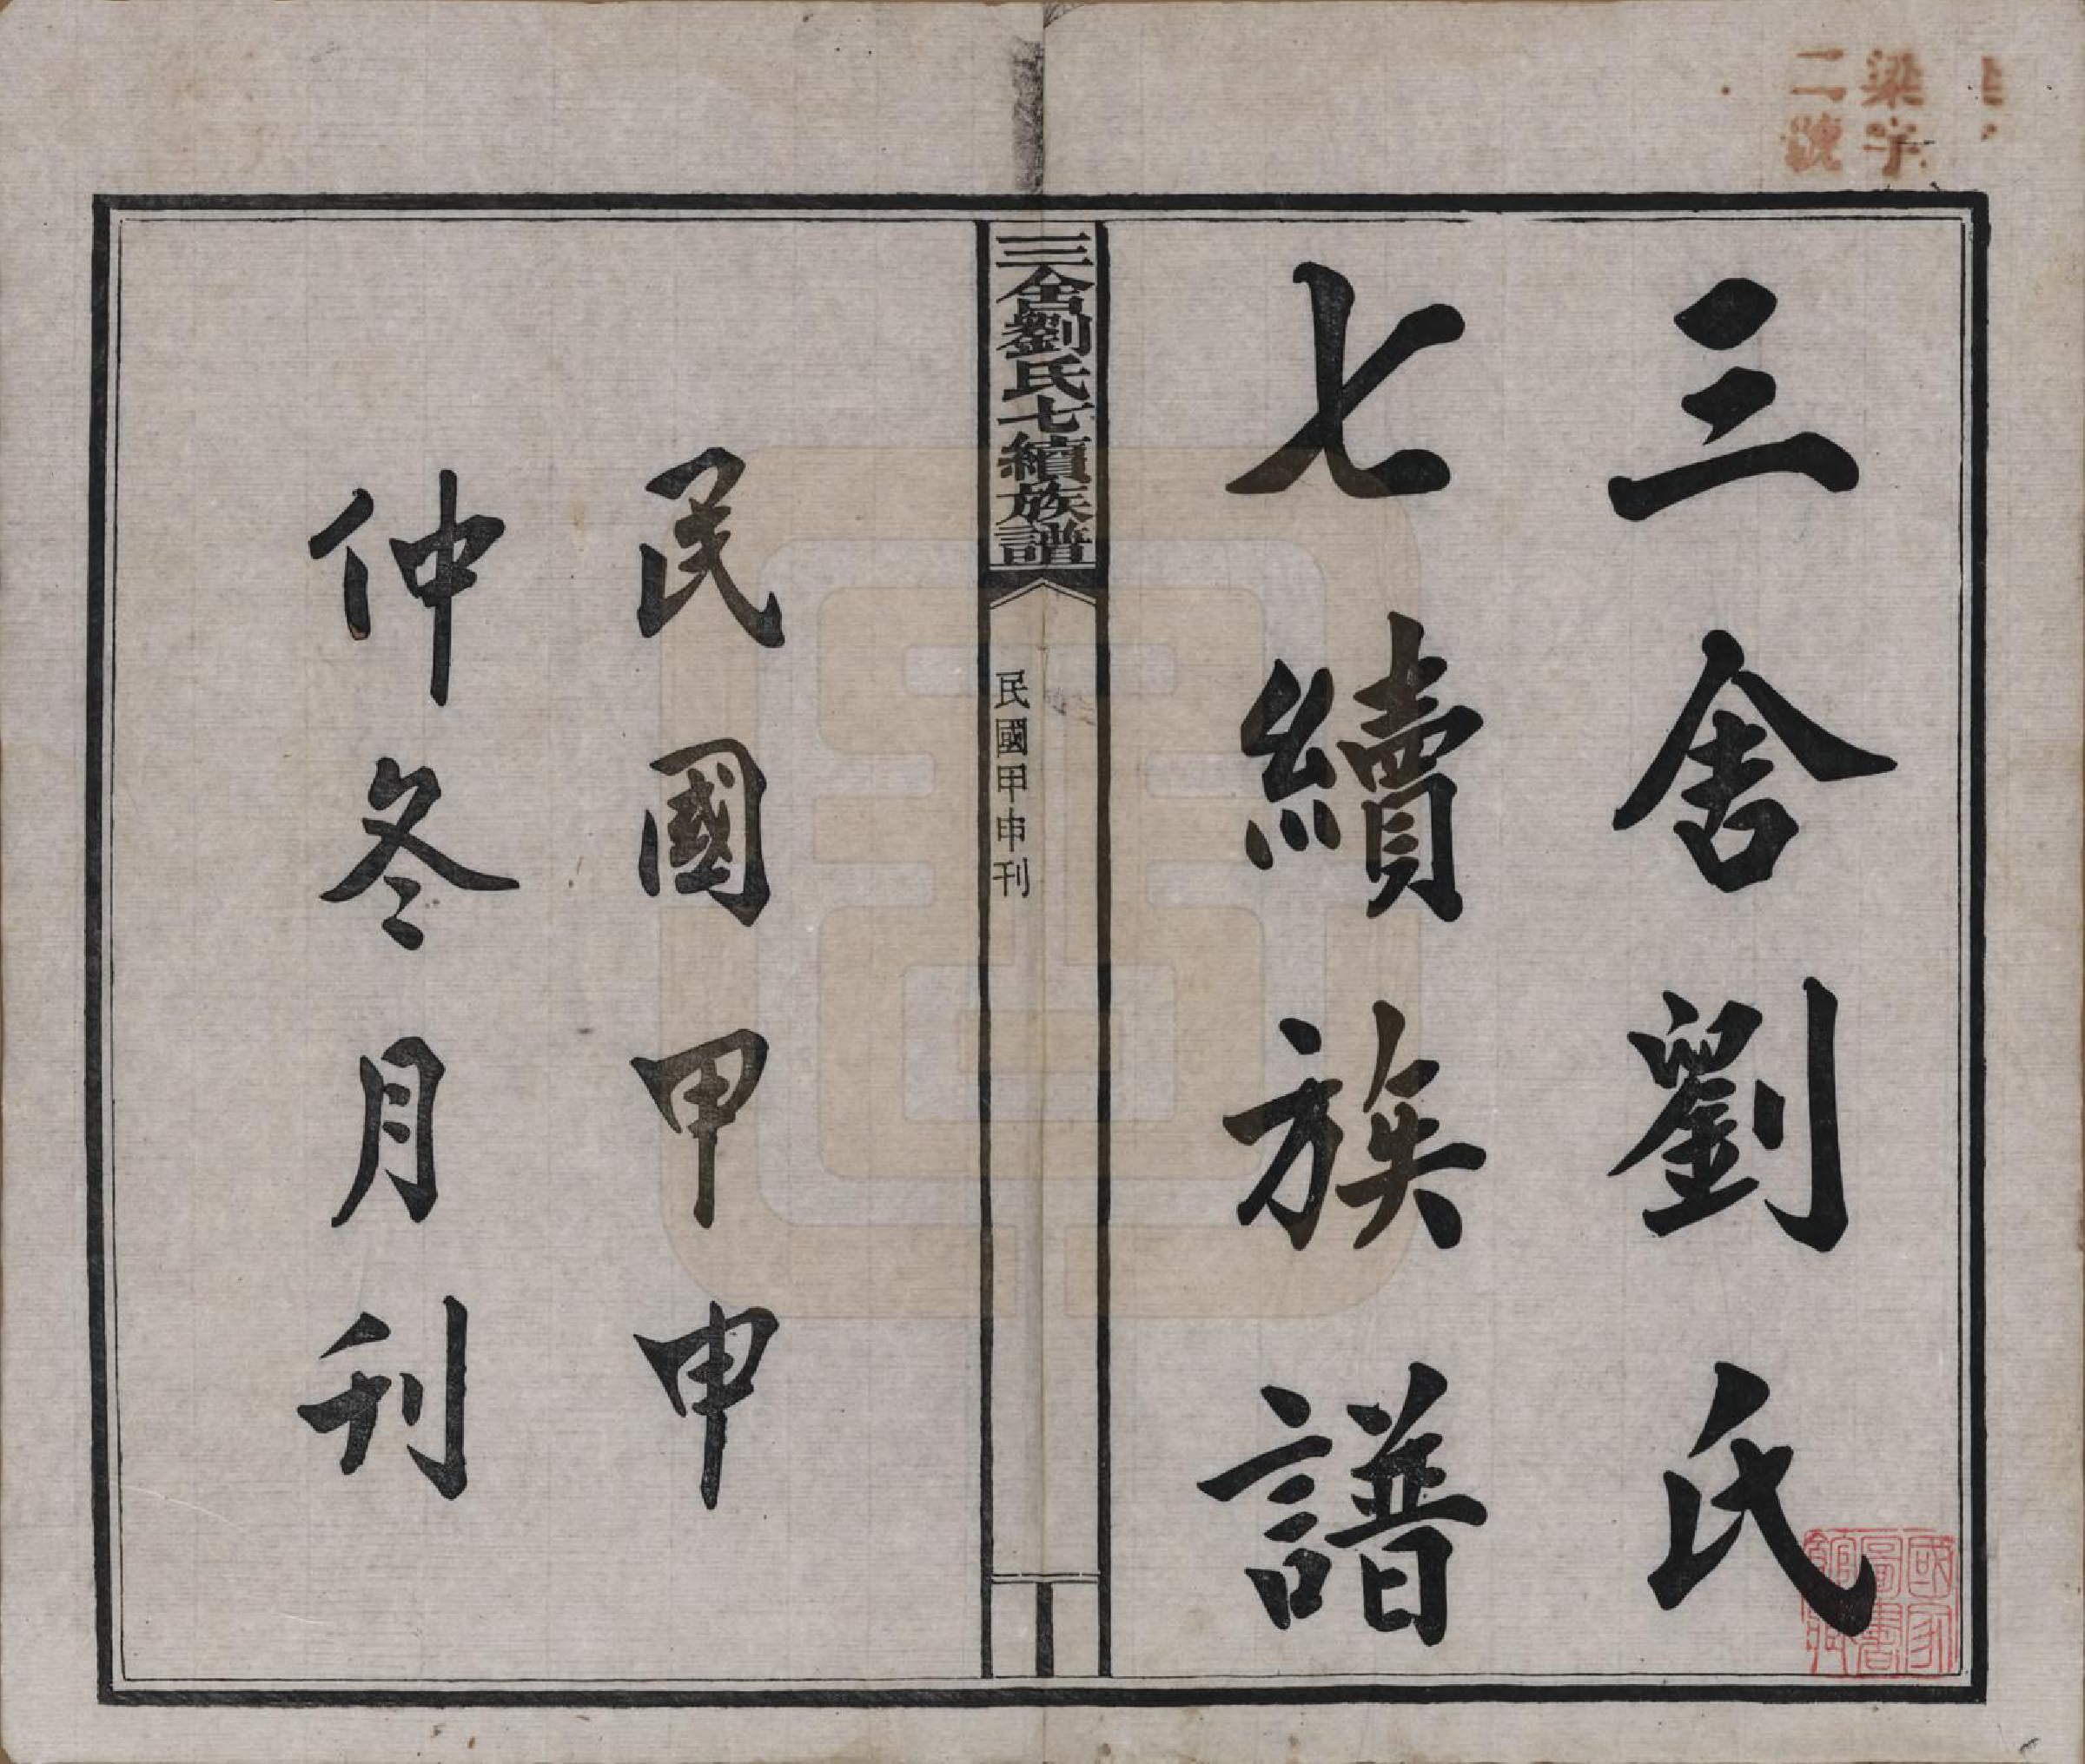 梁字
二號
三舍劉氏
七續族譜
三舍劉氏七續族譜
民國甲申刊
民國甲申
仲冬月刊
國家
圖書
館藏